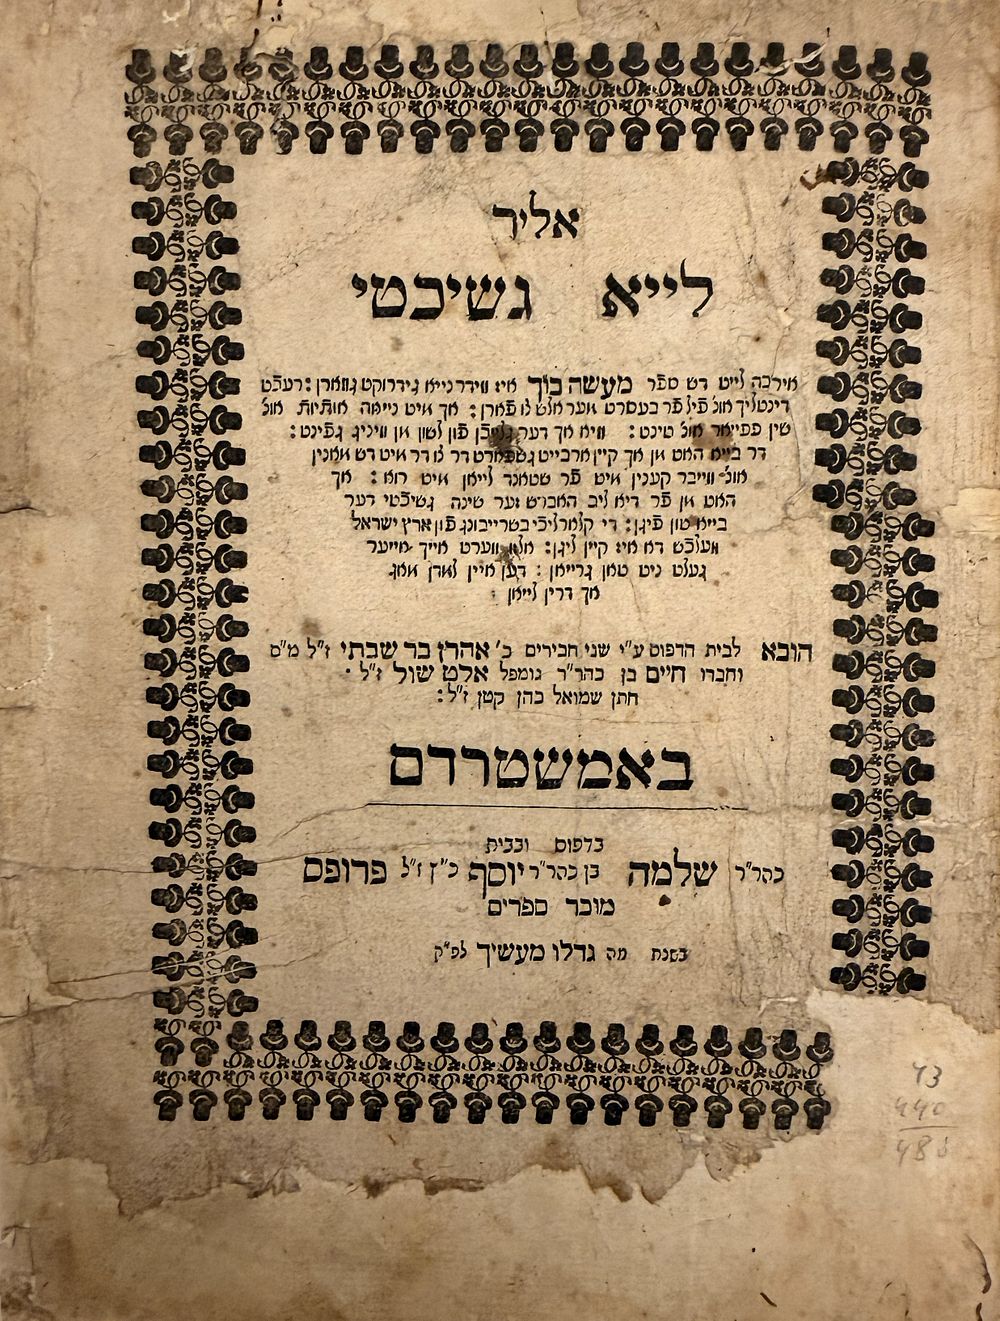 אליר
לייא גשיכטי
אירבה לייט דש ספר מעשה בוך איז ווידר נייא גידרוקט גווארן: רעכט
דייטליך אונ פיל פר בעסרט אער אלש צו פארן: אך מיט נייאה אותיות אונ
שין פפייאר אונ טינט: וויא אך דער גלייכן פון לשון מן וויניג גפינט:
דר בייא האט מן אך קיין ארבייט גשפארט דר צו דר מיט דש מאנין
אונ ווייבר קענין מיט פר שטאנד לייאן מיט רוא: אך
האט מן פר דיא ליב האברש זער שינה גשיכטי דער
בייא טון פיגן: די קלארליכי בשרייבונג פון ארץ ישראל
וועלכש דא איז קיין ליגן: אלזו ווערט אייך אייער
געלט ניט טאן גרייאן: דען איין לאדן מאג
אך דרין לייאן:
הובא לבית הדפוס ע״י שני חבירים כ׳ אהרן בר שבתי ז״ל מ״ס
וחברו חיים בן כהר״ר גומפל אלט שול ז״ל.
חתן שמואל כהן קטן ז״ל:
באמשטרדם
בדפוס ובבית
כהר״ר שלמה בן כהר״ר יוסף כ״ץ ז״ל פרופס
מוכר ספרים
בשנת מה גדלו מעשיך לפ״ק
43
440